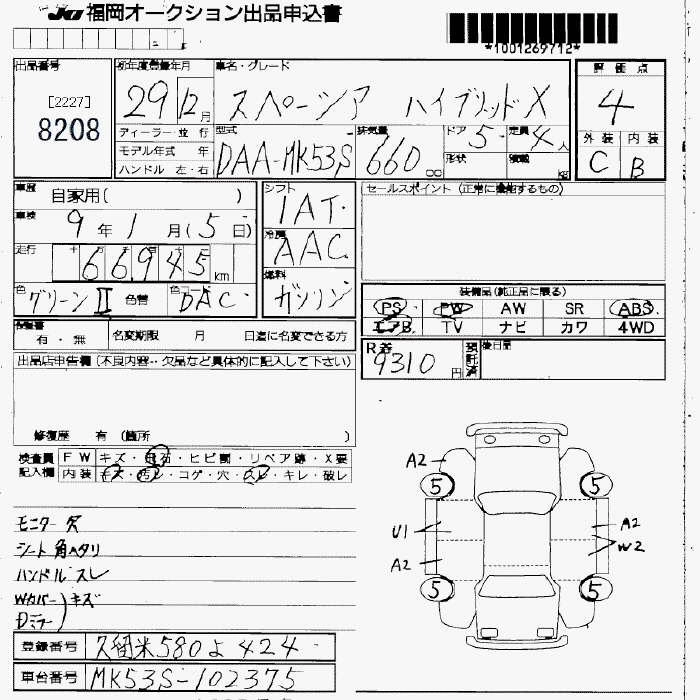 JU 福岡オークション出品申込書
*1001269712*
出品番号
[2227]
8208
初年度登録年月
29 12月
ディーラー・並行
モデル年式 年
ハンドル 左・右
車名・グレード
スペーシア ハイブリッドX
型式
DAA-MK53S
排気量
660 cc
ドア 5
定員 4人
形状
積載 kg
評価点
4
外装 内装
C B
車歴
自家用( )
車検
9年1月(5日)
走行
十 万 千 百 十
66945 km
色
グリーンⅡ 色替
色コード
DAC
シフト
IAT
冷房
AAC
燃料
ガソリン
セールスポイント (正常に機能するもの)
装備品(純正品に限る)
PS PW AW SR ABS
エアB TV ナビ カワ 4WD
保証書
有・無
名変期限 月 日迄に名変できる方
R券
9310円
預託済
後日品
出品店申告欄 (不良内容・欠品など具体的に記入して下さい)
修復歴 有 (箇所 )
検査員記入欄
FW キズ・飛石・ヒビ割・リペア跡・X要
内装 キズ・汚レ・コゲ・穴・スレ・キレ・破レ
モニター欠
シート角ヘタリ
ハンドルスレ
Wカバー
Dミラー
キズ
A2
5 5
U1
A2
A2
W2
5 5
登録番号 久留米580よ424
車台番号 MK53S-102375